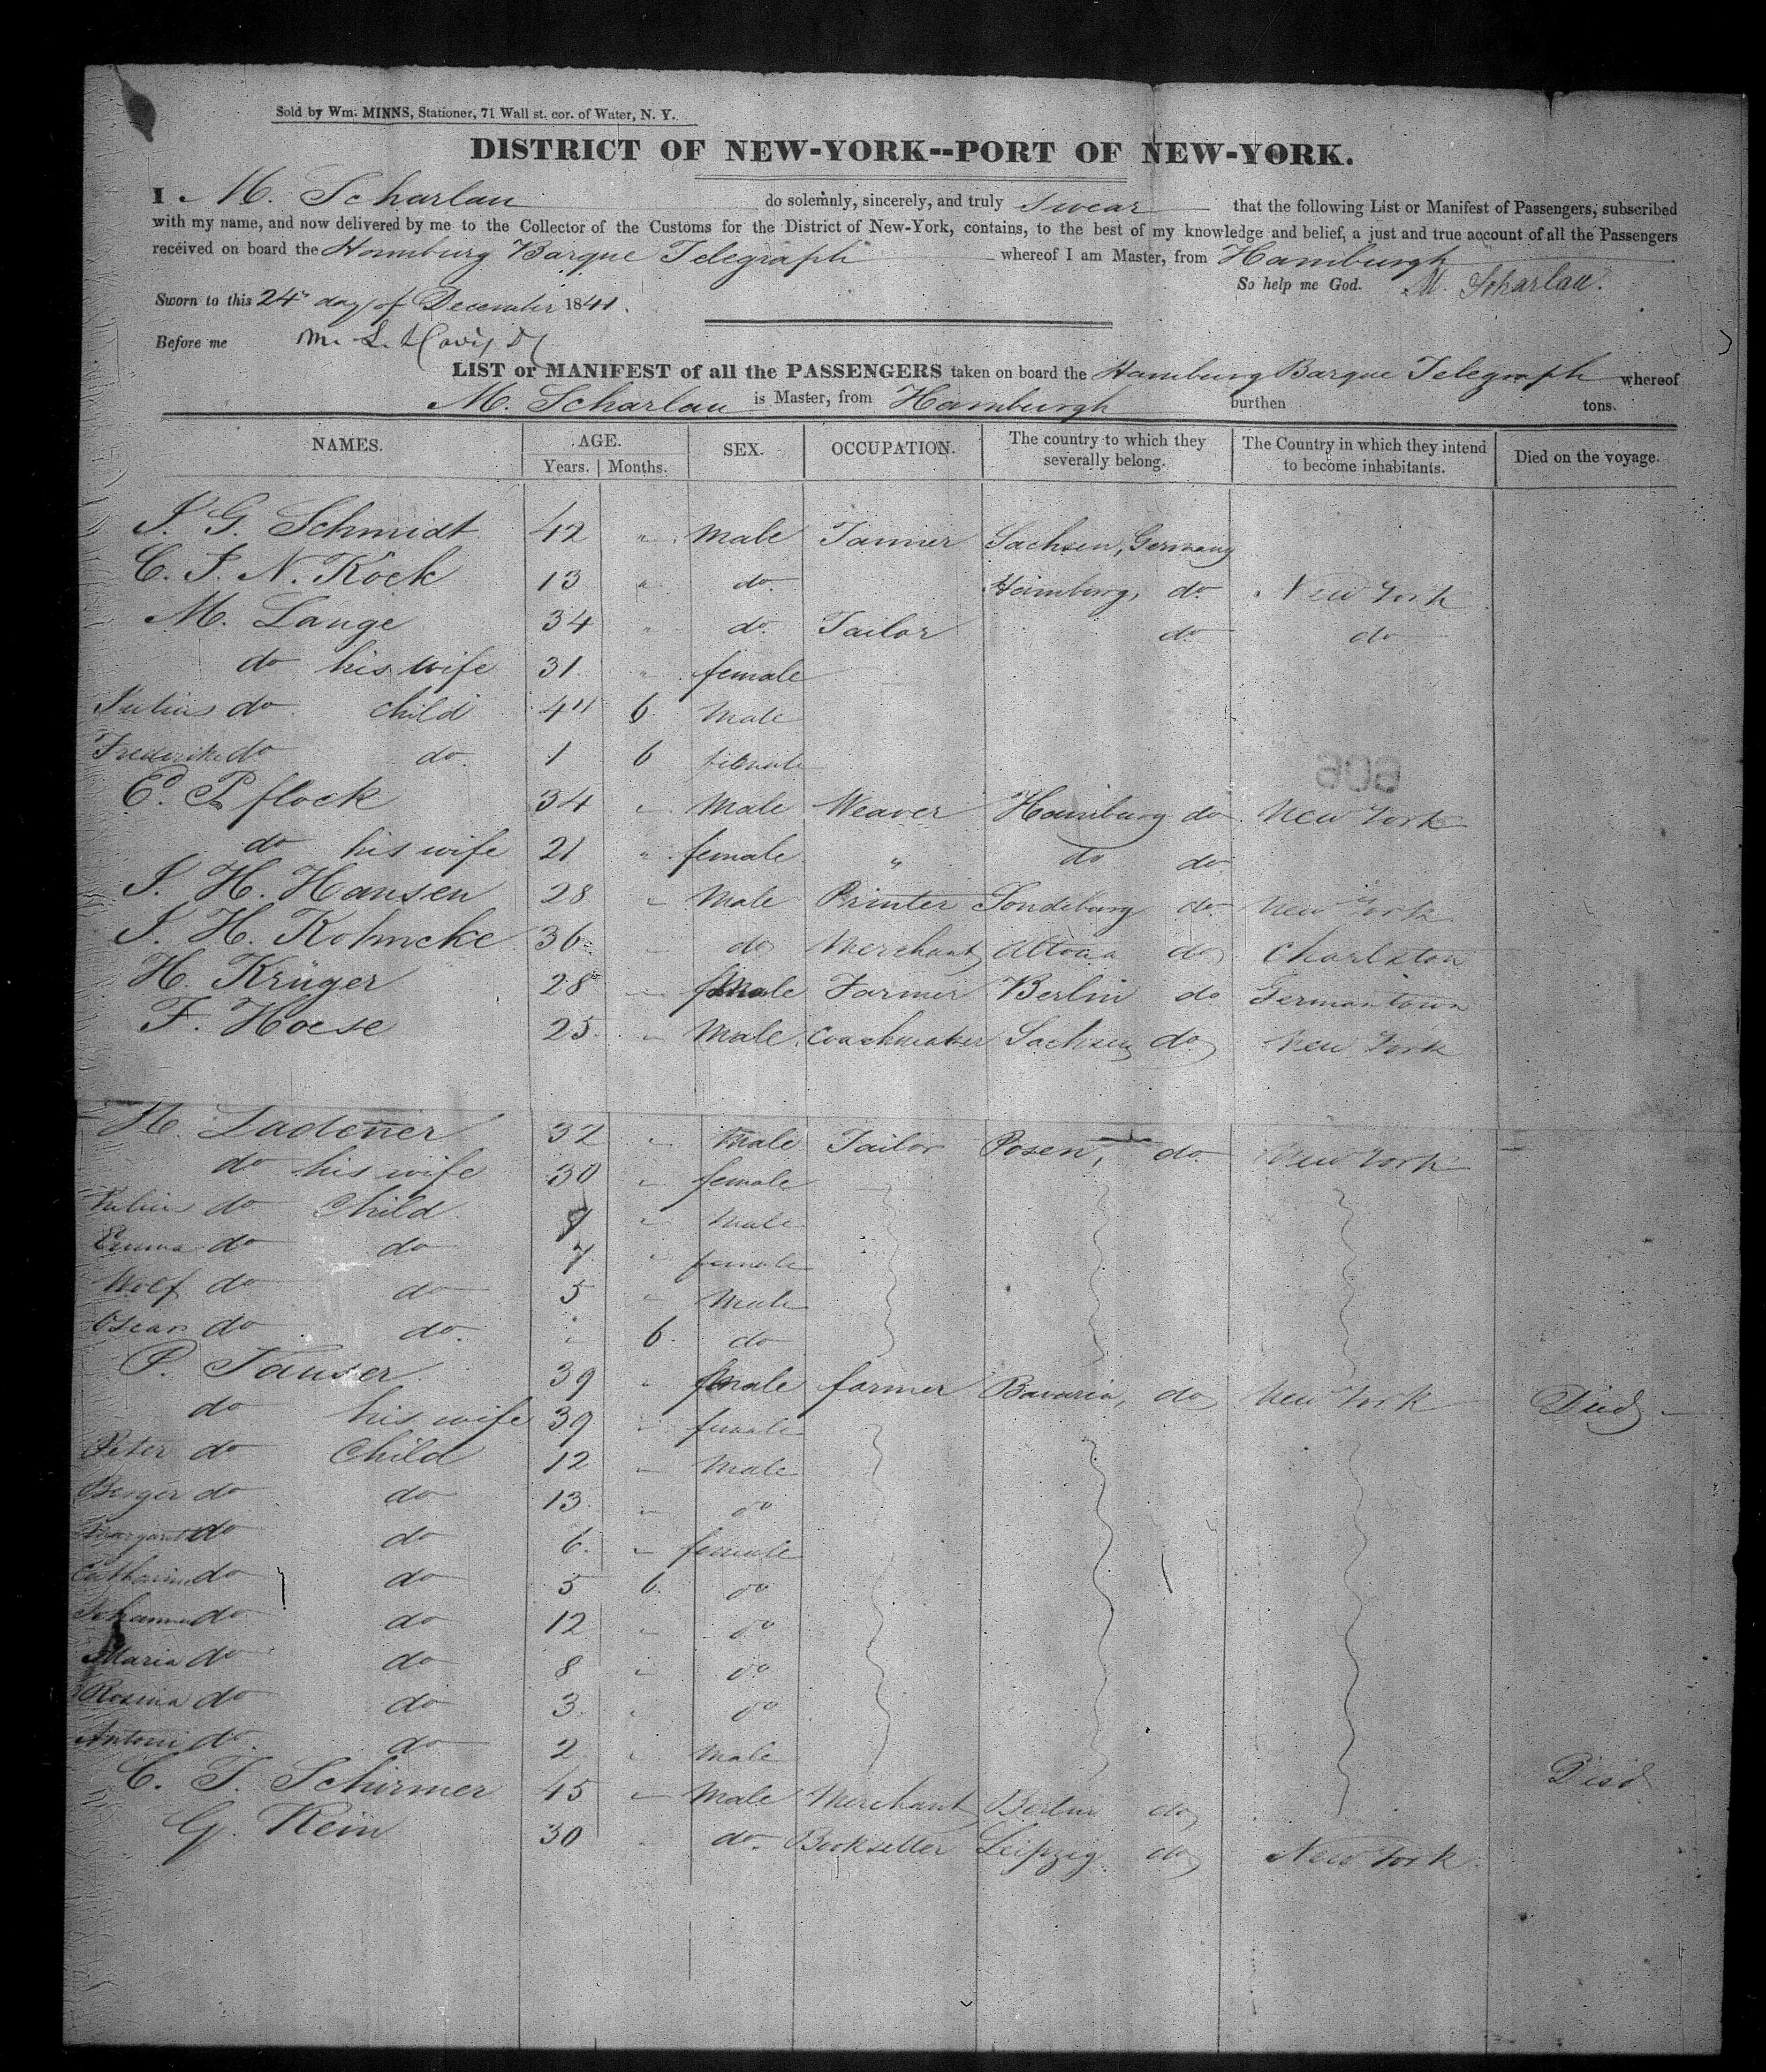 Sold by Wm. MINNS, Stationer, 71 Wall st. cor. of Water, N. Y.
DISTRICT OF NEW-YORK--PORT OF NEW-YORK.
I M. Scharlau do solemnly, sincerely, and truly swear that the following List or Manifest of Passengers, subscribed
with my name, and now delivered by me to the Collector of the Customs for the District of New-York, contains, to the best of my knowledge and belief, a just and true account of all the Passengers
received on board the Hamburg Barque Telegraph whereof I am Master, from Hamburgh
So help me God. M. Scharlau.
Sworn to this 24th day of December 1841.
Before me M. L. Davis
LIST or MANIFEST of all the PASSENGERS taken on board the Hamburg Barque Telegraph whereof
M. Scharlau is Master, from Hamburgh burthen tons.
NAMES. AGE. Years. Months. SEX. OCCUPATION. The country to which they severally belong. The Country in which they intend to become inhabitants. Died on the voyage.
J. G. Schmidt 42 " Male Tanner Sachsen, Germany
C. J. N. Köck 13 " do. Hamburg, do. New York
M. Lange 34 " do. Tailor do do
do his wife 31 " female
Julius do child 4 6 Male
Frederike do do. 1 6 female
606
Ed. Pflock 34 " Male Weaver Hamburg do New York
do his wife 21 " female " do do
J. H. Hansen 28 " Male Printer do. New York
J. H. Kohncke 36 " do Merchant Altona do Charlston
H. Krüger 28 " Male Farmer Berlin do Germantown
F. Hoese 25 " Male Coachmaker Sachsen do New York
H. Ladener 32 " Male Tailor Posen, do. New York
do his wife 30 " female
Julius do Child 9 " Male
Emma do do 7 " female
Wolf do do 5 " Male
Oscar do do. " 6 do
P. Tauser 39 " Male farmer Bavaria, do New York Died
do his wife 39 " female
Peter do Child 12 " Male
do do 13 " do
Margareth do do 6 " female
Catharina do do 5 6 do
Johanna do do 12 " do
Maria do do 8 " do
Rosina do do 3 " do
Antoni do. do 2 " Male Died
C. T. Schirmer 45 " Male Merchant Berlin do
G. Rein 30 " do. Bookseller Leipzig do New York